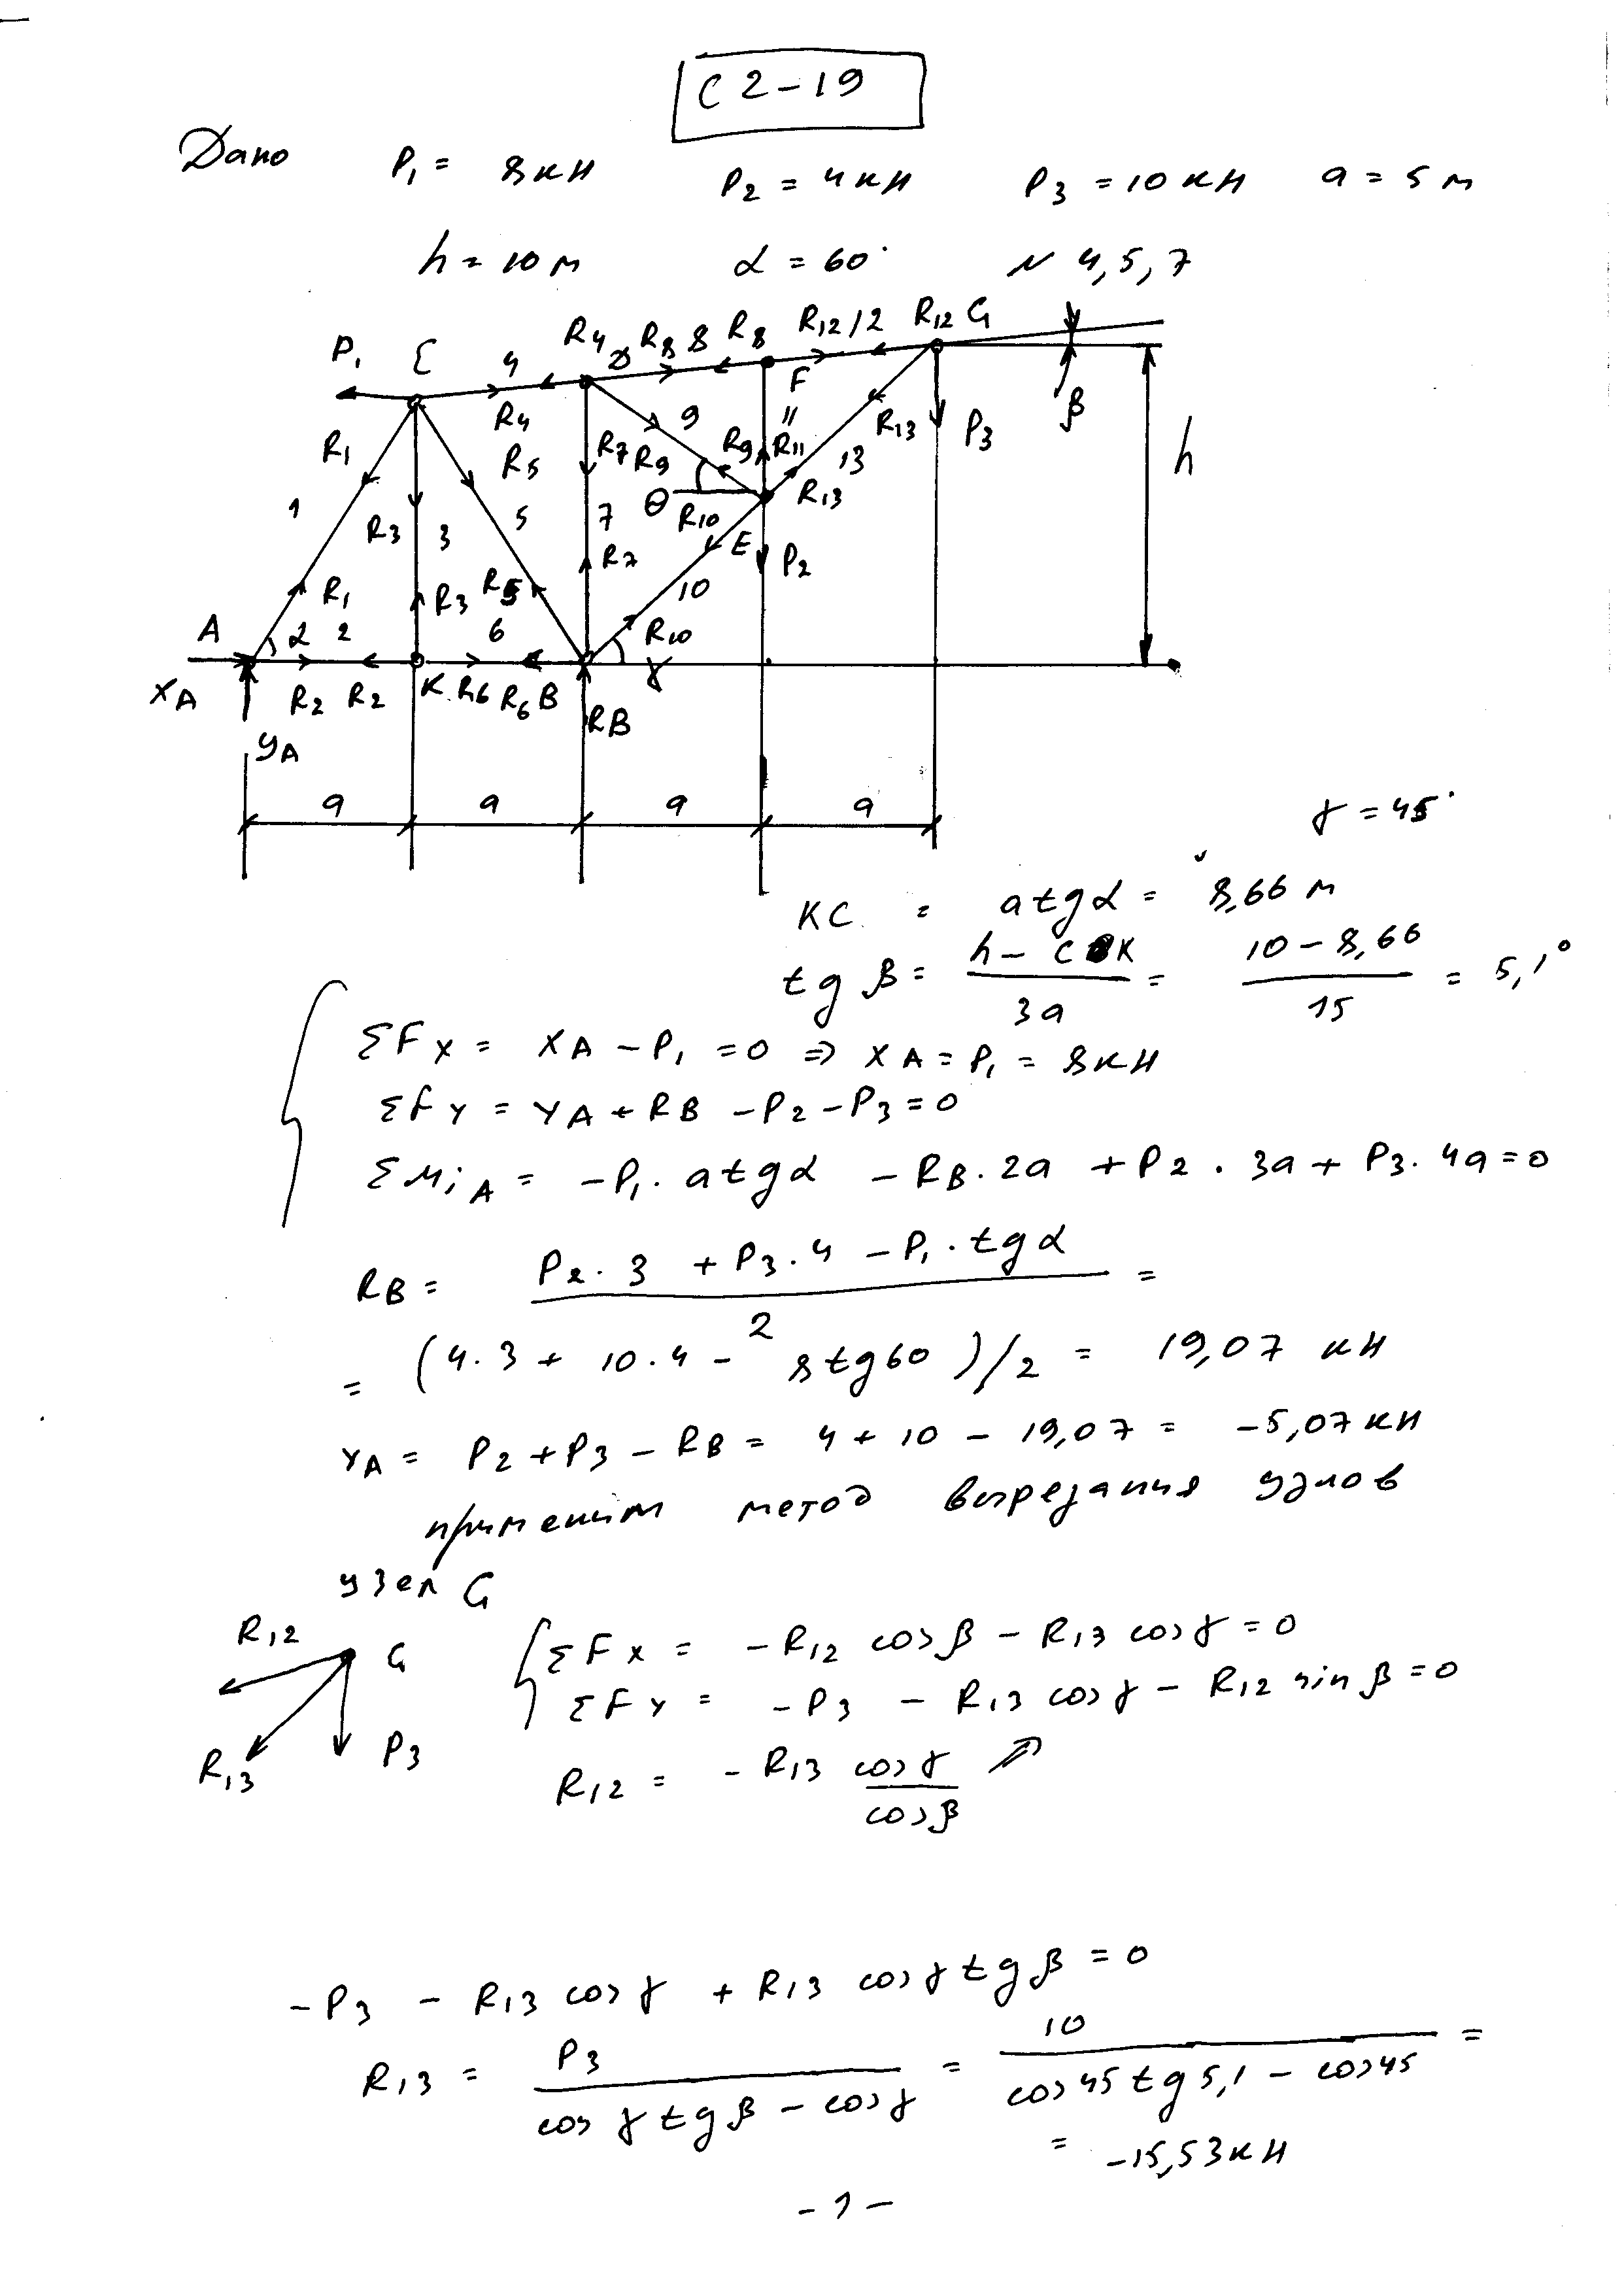 C 2 – 19
Дано P₁ = 8 кН P₂ = 4 кН P₃ = 10 кН a = 5 м
h = 10 м α = 60° N 4, 5, 7
P₁ C 4 R₄ D R₈ 8 R₈ R₁₂ 12 R₁₂ G
R₄ F β
R₁ R₅ R₇ R₉ 9 R₉ 11 R₁₁ 13 R₁₃ P₃ h
1 R₃ 3 5 7 θ R₁₀ R₁₃
R₁ R₃ R₅ R₇ 10 E P₂
A α 2 6 R₁₀
X_A R₂ R₂ K R₆ R₆ B γ
Y_A R_B
a a a a
γ = 45°
KC = a tg α = 8,66 м
tg β = (h – CK)/(3a) = (10 – 8,66)/15 = 5,1°
ΣFx = X_A – P₁ = 0 ⇒ X_A = P₁ = 8 кН
ΣFy = Y_A + R_B – P₂ – P₃ = 0
ΣMi_A = –P₁ · a tg α – R_B · 2a + P₂ · 3a + P₃ · 4a = 0
R_B = (P₂ · 3 + P₃ · 4 – P₁ · tg α)/2 =
= (4 · 3 + 10 · 4 – 8 tg 60)/2 = 19,07 кН
Y_A = P₂ + P₃ – R_B = 4 + 10 – 19,07 = –5,07 кН
применим метод вырезания узлов
узел G
R₁₂ G R₁₃ P₃
ΣFx = –R₁₂ cos β – R₁₃ cos γ = 0
ΣFy = –P₃ – R₁₃ cos γ – R₁₂ sin β = 0
R₁₂ = –R₁₃ cos γ / cos β ⇗
–P₃ – R₁₃ cos γ + R₁₃ cos γ tg β = 0
R₁₃ = P₃/(cos γ tg β – cos γ) = 10/(cos 45 tg 5,1 – cos 45) =
= –15,53 кН
– 1 –